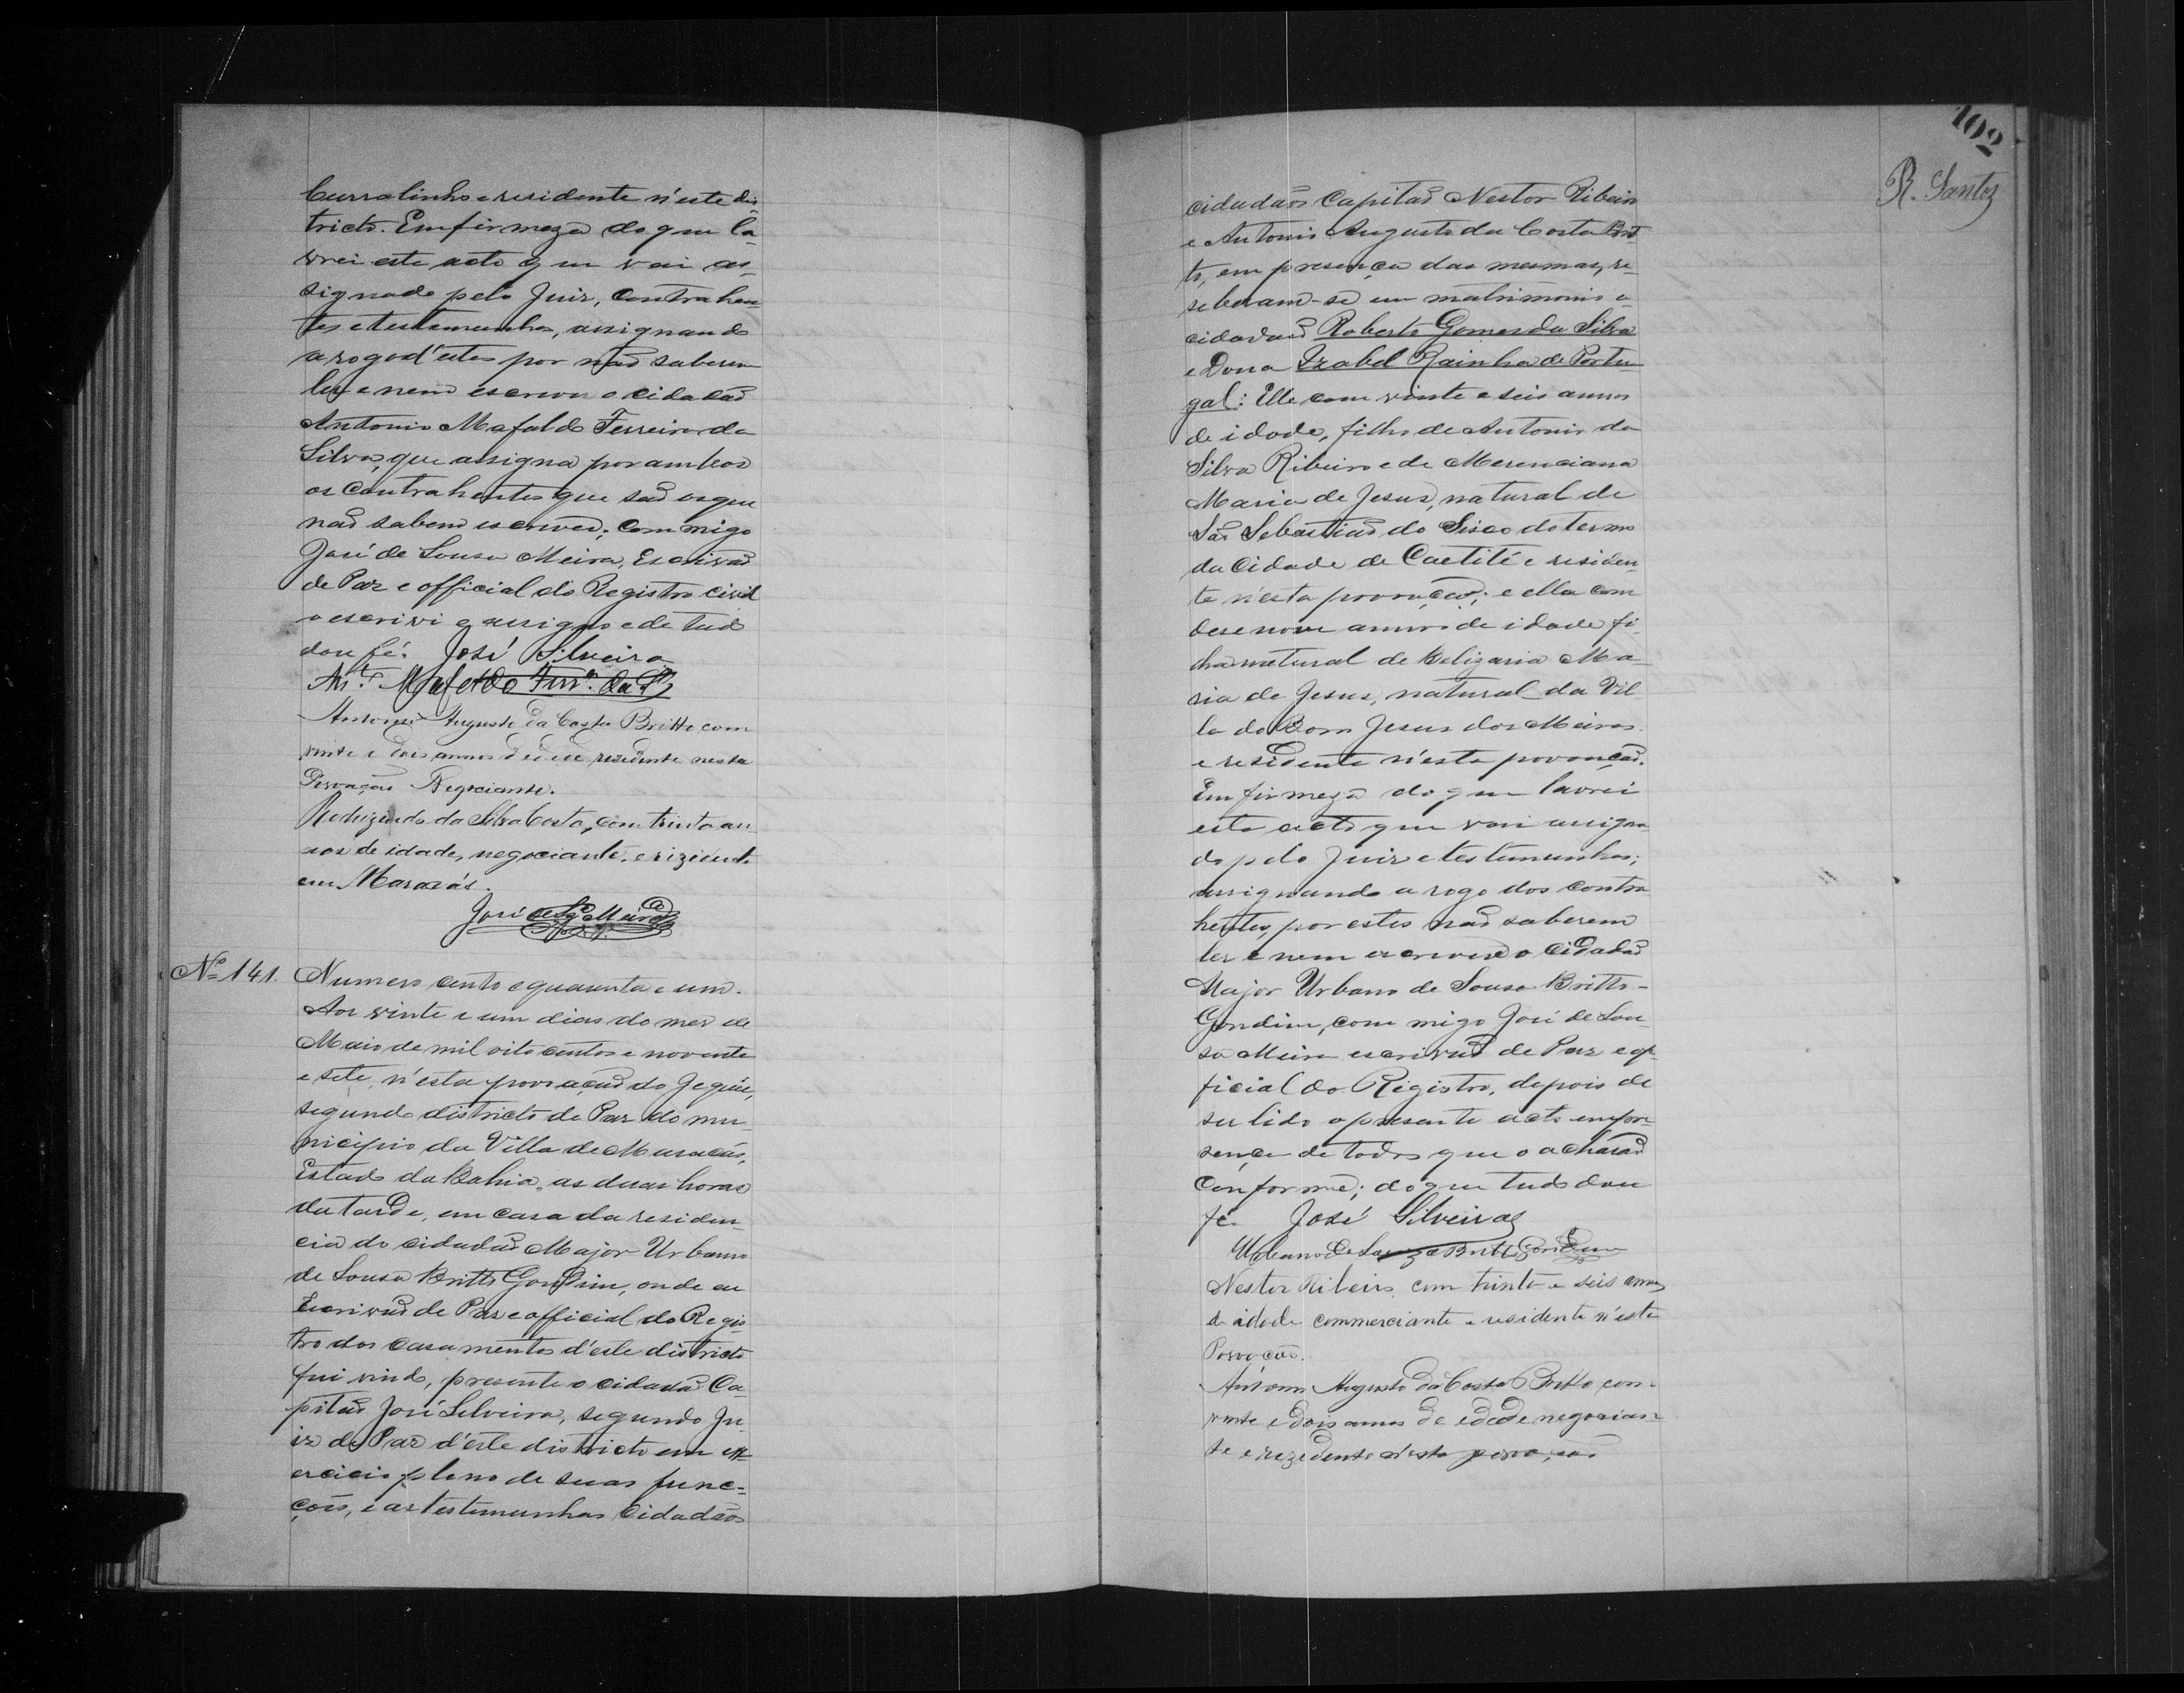 Curralinho e residente n'este dis
tricto. Em firmeza do que la-
vrei este acto que vai as-
signado pelo Juiz, contrahen
tes e testemunhas, assignando
a rogo d'estes por não saberem
ler e nem escrever o cidadão
Antonio Mafaldo Ferreira da
Silva, que assigna por ambos
os contrahentes que são os que
não sabem escrever; commigo
José de Sousa Meira, Escrivão
de Paz e official do Registro civil
o escrivi e assigno e de tudo
dou fé. José Silveira
Ant.º Mafaldo Ferr.ª da S.ª
Antonio Augusto da Costa Britto com
vinte e dois annos de idade residente nesta
Povoação Negociante.
Rodizindo da Silva Costa, com trinta an-
nos de idade, negociante, e rizidente
em Maracás.
José de Sz.ª Meira
Nº 141. Numero cento e quarenta e um.
Aos vinte e um dias do mez de
Maio de mil oito centos e noventa
e sete, n'esta povoação do Jequié,
segundo districto de Paz do mu-
nicipio da Villa de Maracás,
Estado da Bahia, as duas horas
da tarde, em casa da residen-
cia do cidadão Major Urbano
de Sousa Britto Gondim, onde eu
Escrivão de Paz e official do Regis-
tro dos casamentos d'este districto
fui vindo, presente o cidadão Ca-
pitão José Silveira, segundo Ju-
iz de Paz d'este districto em ex-
ercicio pleno de suas func-
ções, e as testemunhas Cidadãos
102
R. Santos
cidadãos Capitão Nestor Ribeiro
e Antonio Augusto da Costa Brit
to, em presença das mesmas, re-
seberam-se em matrimonio o
cidadão Roberto Gomes da Silva
e Dona Izabel Rainha de Portu-
gal: Elle com vinte e seis annos
de idade, filho de Antonio da
Silva Ribeiro e de Merenciana
Maria de Jesus, natural de
São Sebastião do Sisco do termo
da Cidade de Caetité e residen-
te n'esta povoação; e ella com
desenove annos de idade fi-
lha natural de Beligaria Ma-
ria de Jesus, natural da Vil
la do Bom Jesus dos Meiras
e residente n'esta povoação.
Em firmeza do que lavrei
este acto que vai assigna-
do pelo Juiz e testemunhas;
assignando a rogo dos contra
hentes, por estes não saberem
ler e nem escrever o cidadão
Major Urbano de Sousa Britto
Gondim, com migo José de Sou-
sa Meira escrivão de Paz e of-
ficial do Registro, depois de
ser lido o presente acto em pre-
sença de todos que o acharão
conforme; do que tudo dou
fé. José Silveira
Urbano de Souza Britto Gondim
Nestor Ribeiro, com trinta e seis annos
de idade commerciante e residente n'esta
Povoação.
Antonio Augusto da Costa Britto com
vinte e dois annos de edade negocian-
te e rezedente n'esta povoação